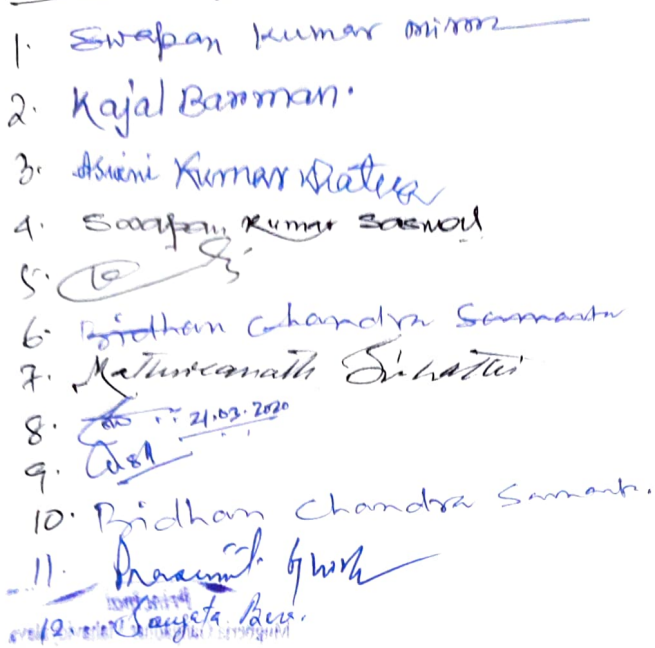 1. Swapan Kumar misra
2. Kajal Barman.
3. Aswini Kumar Khatua
4. Swapan Kumar Sasmal
5.
6. Bidhan Chandra Samanta
7. Mathureanath Sinhathi
8. 21.03.2020
9.
10. Bidhan Chandra Samanta.
11. Ghosh
12. Sangata Bera.